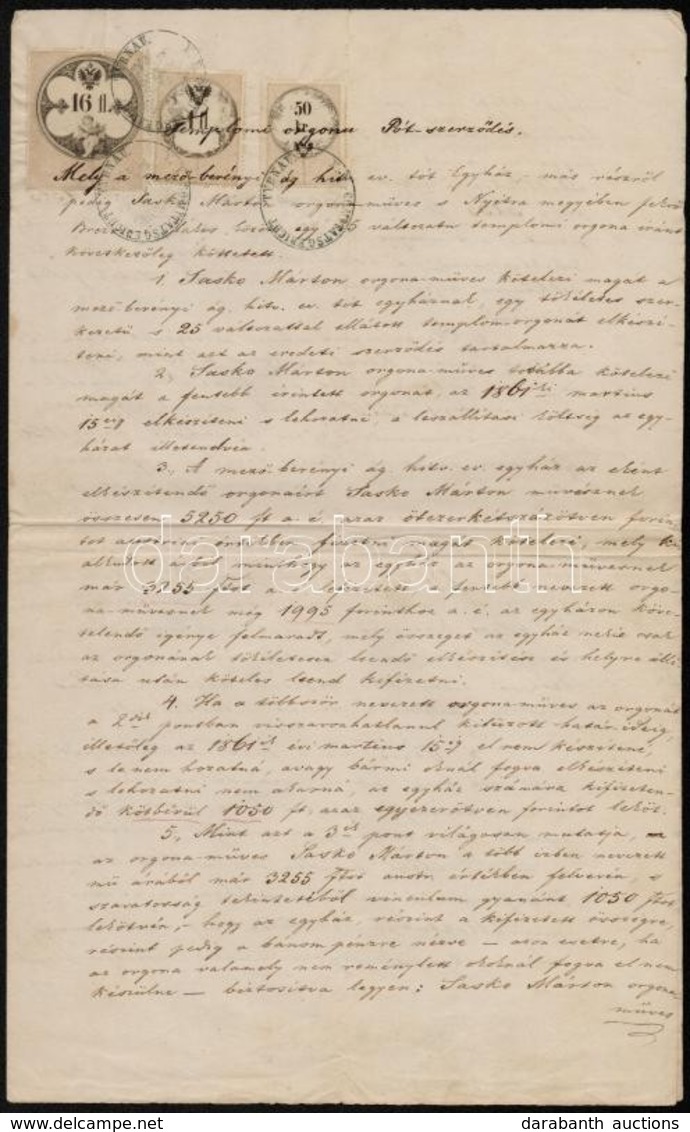 16 fl.
1 fl.
50 kr
Templomi orgona Pót-szerződés.
Mely a mező-berényi ág. hitv. ev. tót Egyház, más részről
pedig Sasko Márton orgona-műves s Nyitra megyében
egy változatu templomi orgona iránt
következőleg köttetett.
1. Sasko Márton orgona-műves kötelezi magát a
mező-berényi ág. hitv. ev. tót egyháznak, egy tökéletes szer-
kezetü s 25 változattal ellátott templom-orgonát elkészí-
teni, mint azt az eredeti szerződés tartalmazza.
2. Sasko Márton orgona-műves továbbá kötelezi
magát a fentebb érintett orgonát, az 1861-ki martius
15-én elkészíteni s lehozatni, a leszállítási költség az egy-
házat illetendvén.
3., A mező-berényi ág. hitv. ev. egyház az ekként
elkészítendő orgonáért Sasko Márton művésznek
összesen 5250 ft a. é. azaz ötezerkétszázötven forin-
tot austriai értékben fizetni magát kötelezi, mely ki
alkudott árból minthogy az egyház az orgona-művesnek
már 3255 ftot a. é. lefizetett s fentebb nevezett orgo-
na-művesnek még 1995 forinthoz a. é. az egyházon köve-
telendő igénye felmaradt, mely összeget az egyház nekie csak
az orgonának tökéletesen leendő elkészítése és helyre állí-
tása után köteles leend kifizetni.
4. Ha a többször nevezett orgona-műves az orgonát
a 2dik pontban visszavonhatlanul kitüzött határ-ideig,
illetőleg az 1861ik évi martius 15-ig el nem készítené
s le nem hozatná, avagy bármi oknál fogva elkészíteni
s lehozatni nem akarná, az egyház számára kifizeten-
dő kötbérül 1050 ft. azaz egyezerötven forintot leköt.
5., Mint azt a 3ik pont világosan mutatja,
az orgona-műves Sasko Márton a több izben nevezett
mű árából már 3255 ftot austr. értékben felvevén, s
szavatosság tekintetéből vinculum gyanánt 1050 ftot
lekötvén, hogy az egyház, részint a kifizetett összegre,
részint pedig a bánom pénzre nézve — azon esetre, ha
az orgona valamely nem reménylett oknál fogva el nem
készülne — biztosítva legyen: Sasko Márton orgona-
műves
darabanth
darabanth auctions